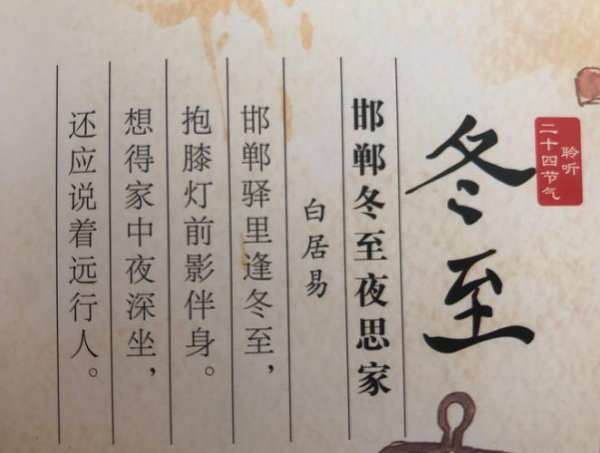 聆听
二十四节气
冬至
邯郸冬至夜思家
白居易
邯郸驿里逢冬至，
抱膝灯前影伴身。
想得家中夜深坐，
还应说着远行人。